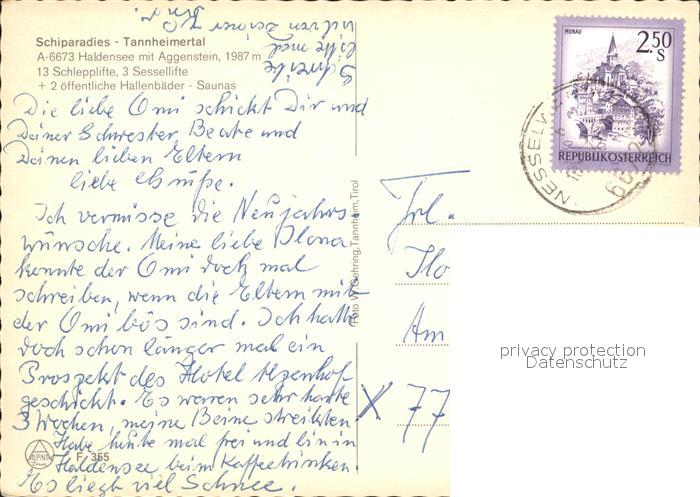 Schiparadies - Tannheimertal
A-6673 Haldensee mit Aggenstein, 1987 m
13 Schlepplifte, 3 Sessellifte
+ 2 öffentliche Hallenbäder - Saunas
Die liebe Omi schickt Dir und
Deiner Schwester Beate und
Deinen lieben Eltern
liebe Grüße.
Ich vermisse die Neujahrs-
wünsche. Meine liebe Ilona
konnte der Omi doch mal
schreiben, wenn die Eltern mit
der Omi bös sind. Ich hatte
doch schon länger mal ein
Prospekt des Hotel
geschickt. Es waren sehr harte
3 Wochen, meine Beine streikten
Habe heute mal frei und bin in
Haldensee beim Kaffeetrinken.
Es liegt viel Schnee.
Schreibe
bitte mal
Foto W. Gehring, Tannheim, Tirol
ALPINA
F. 355
Frl.
Ilo
Am
X 77
MURAU
2.50
S
REPUBLIK ÖSTERREICH
NESSELW
6672
privacy protection
Datenschutz